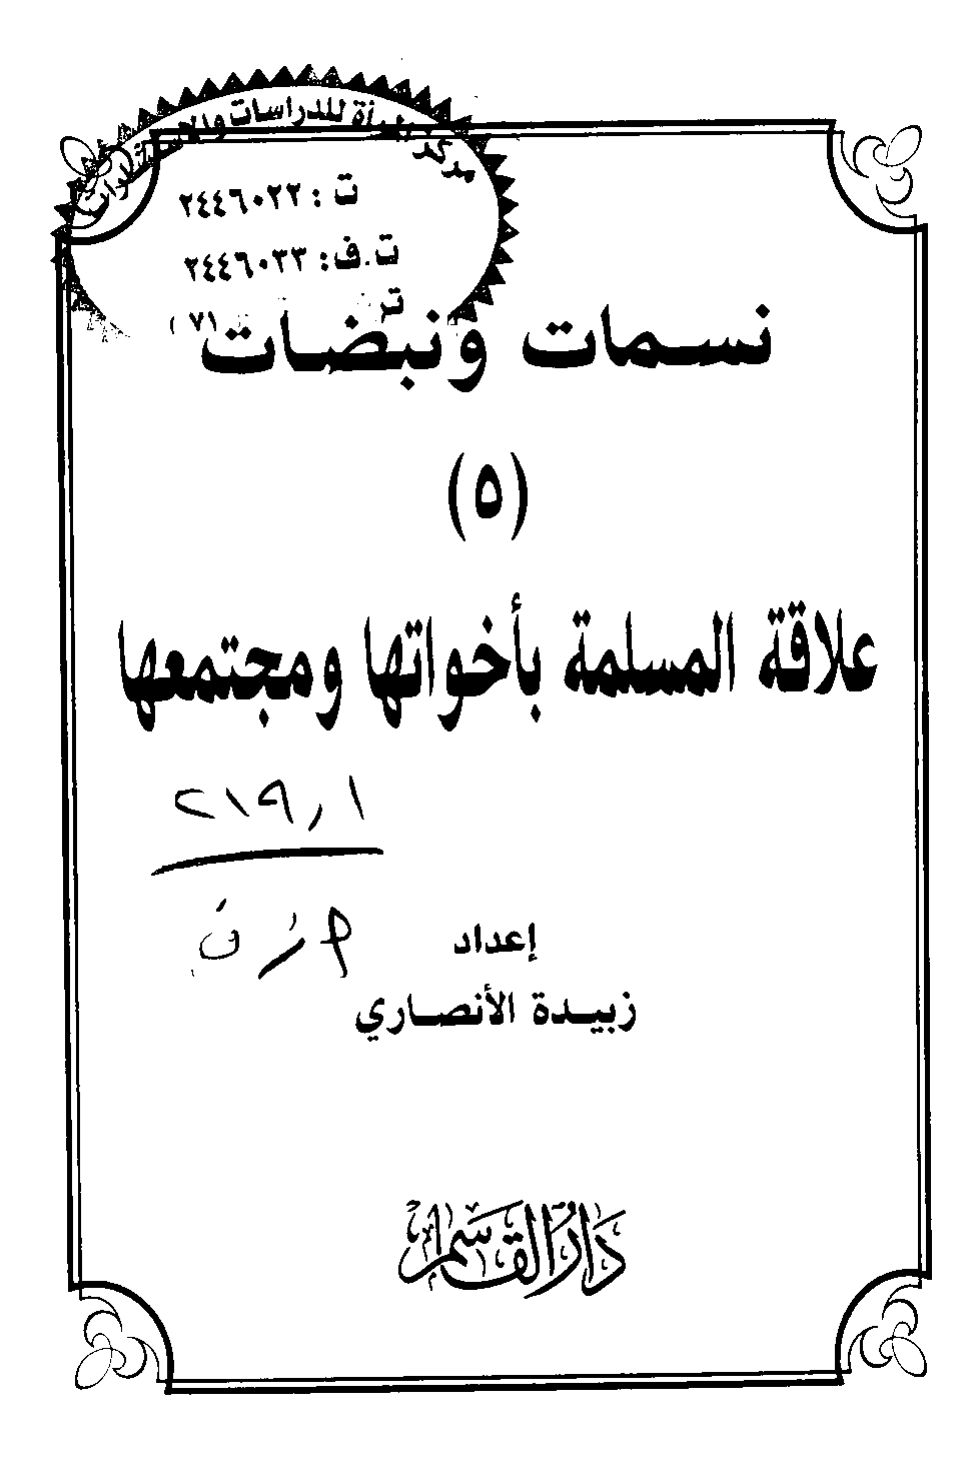 للدراسات
ت : ٢٤٤٦٠٢٢
ت.ف: ٢٤٤٦٠٣٣
نسمات ونبضات
(٥)
علاقة المسلمة بأخواتها ومجتمعها
٢١٩,١
إعداد
زبيدة الأنصاري
دَارُ القَاسِم